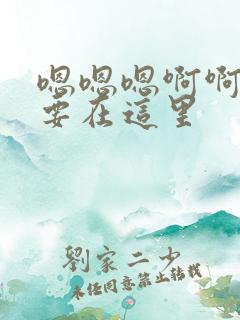 嗯嗯嗯啊啊
要在這里
劉家二少
未经同意禁止转载